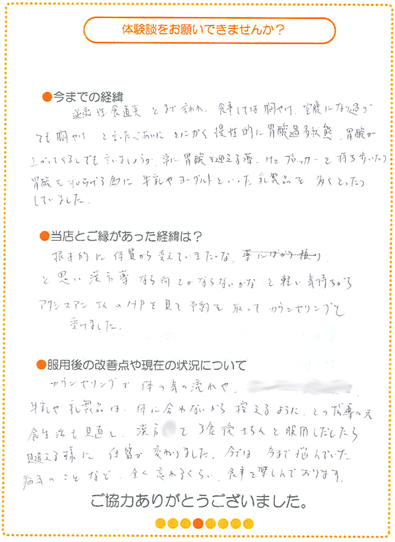 体験談をお願いできませんか？
●今までの経緯
逆流性食道炎 とまで言われ、食事しては胸やけ、空腹になり過ぎ
ても胸やけ といったぐあいに とにかく慢性的に胃酸過多状態、胃酸が
上がってくるしでも 常に胃酸を抑える薬、H2ブロッカーを持ち歩いたり
胃酸を 為に 牛乳やヨーグルトといった乳製品を 多くとったり
していました。
●当店とご縁があった経緯は？
根本的に体質から変えていきたいな、
と思い 漢方薬なら何とかならないかなと軽い気持ちから
さんのHPを見て予約を取ってカウンセリングを
受けました。
●服用後の改善点や現在の状況について
カウンセリングで 体の気の流れや、
牛乳や乳製品は、体に合わないから控えるように、との指導の元
食生活も見直し、漢方 を3ヶ月後きちんと服用しだしたら
見違える様に 体質が変わりました。今では 今まで悩んでいた
胸やけのことなど、全く忘れるくらい、食事を楽しんでおります。
ご協力ありがとうございました。